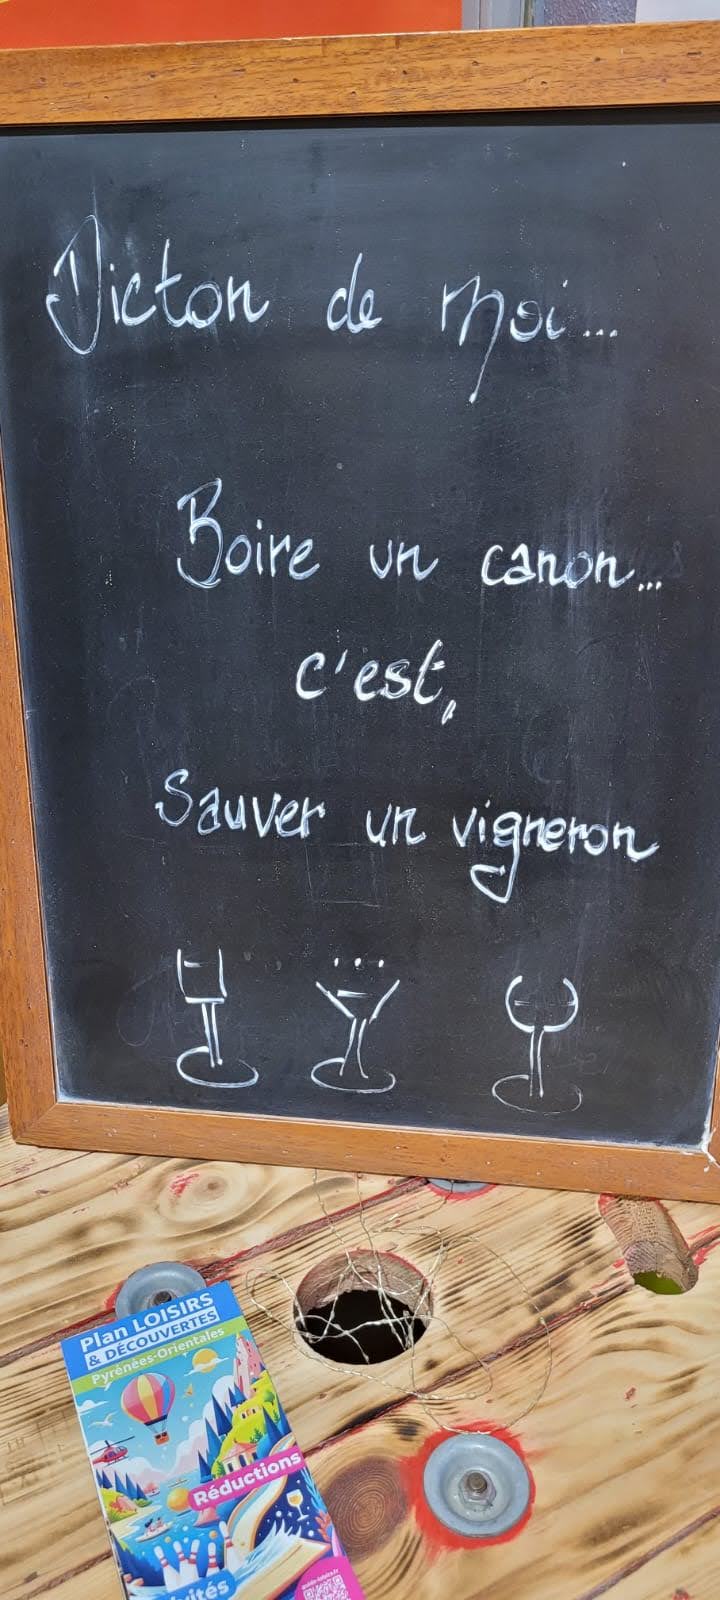 Dicton de moi...
Boire un canon...
c'est,
Sauver un vigneron
Plan LOISIRS
& DÉCOUVERTES
Pyrénées-Orientales
Réductions
guide-loisirs.fr